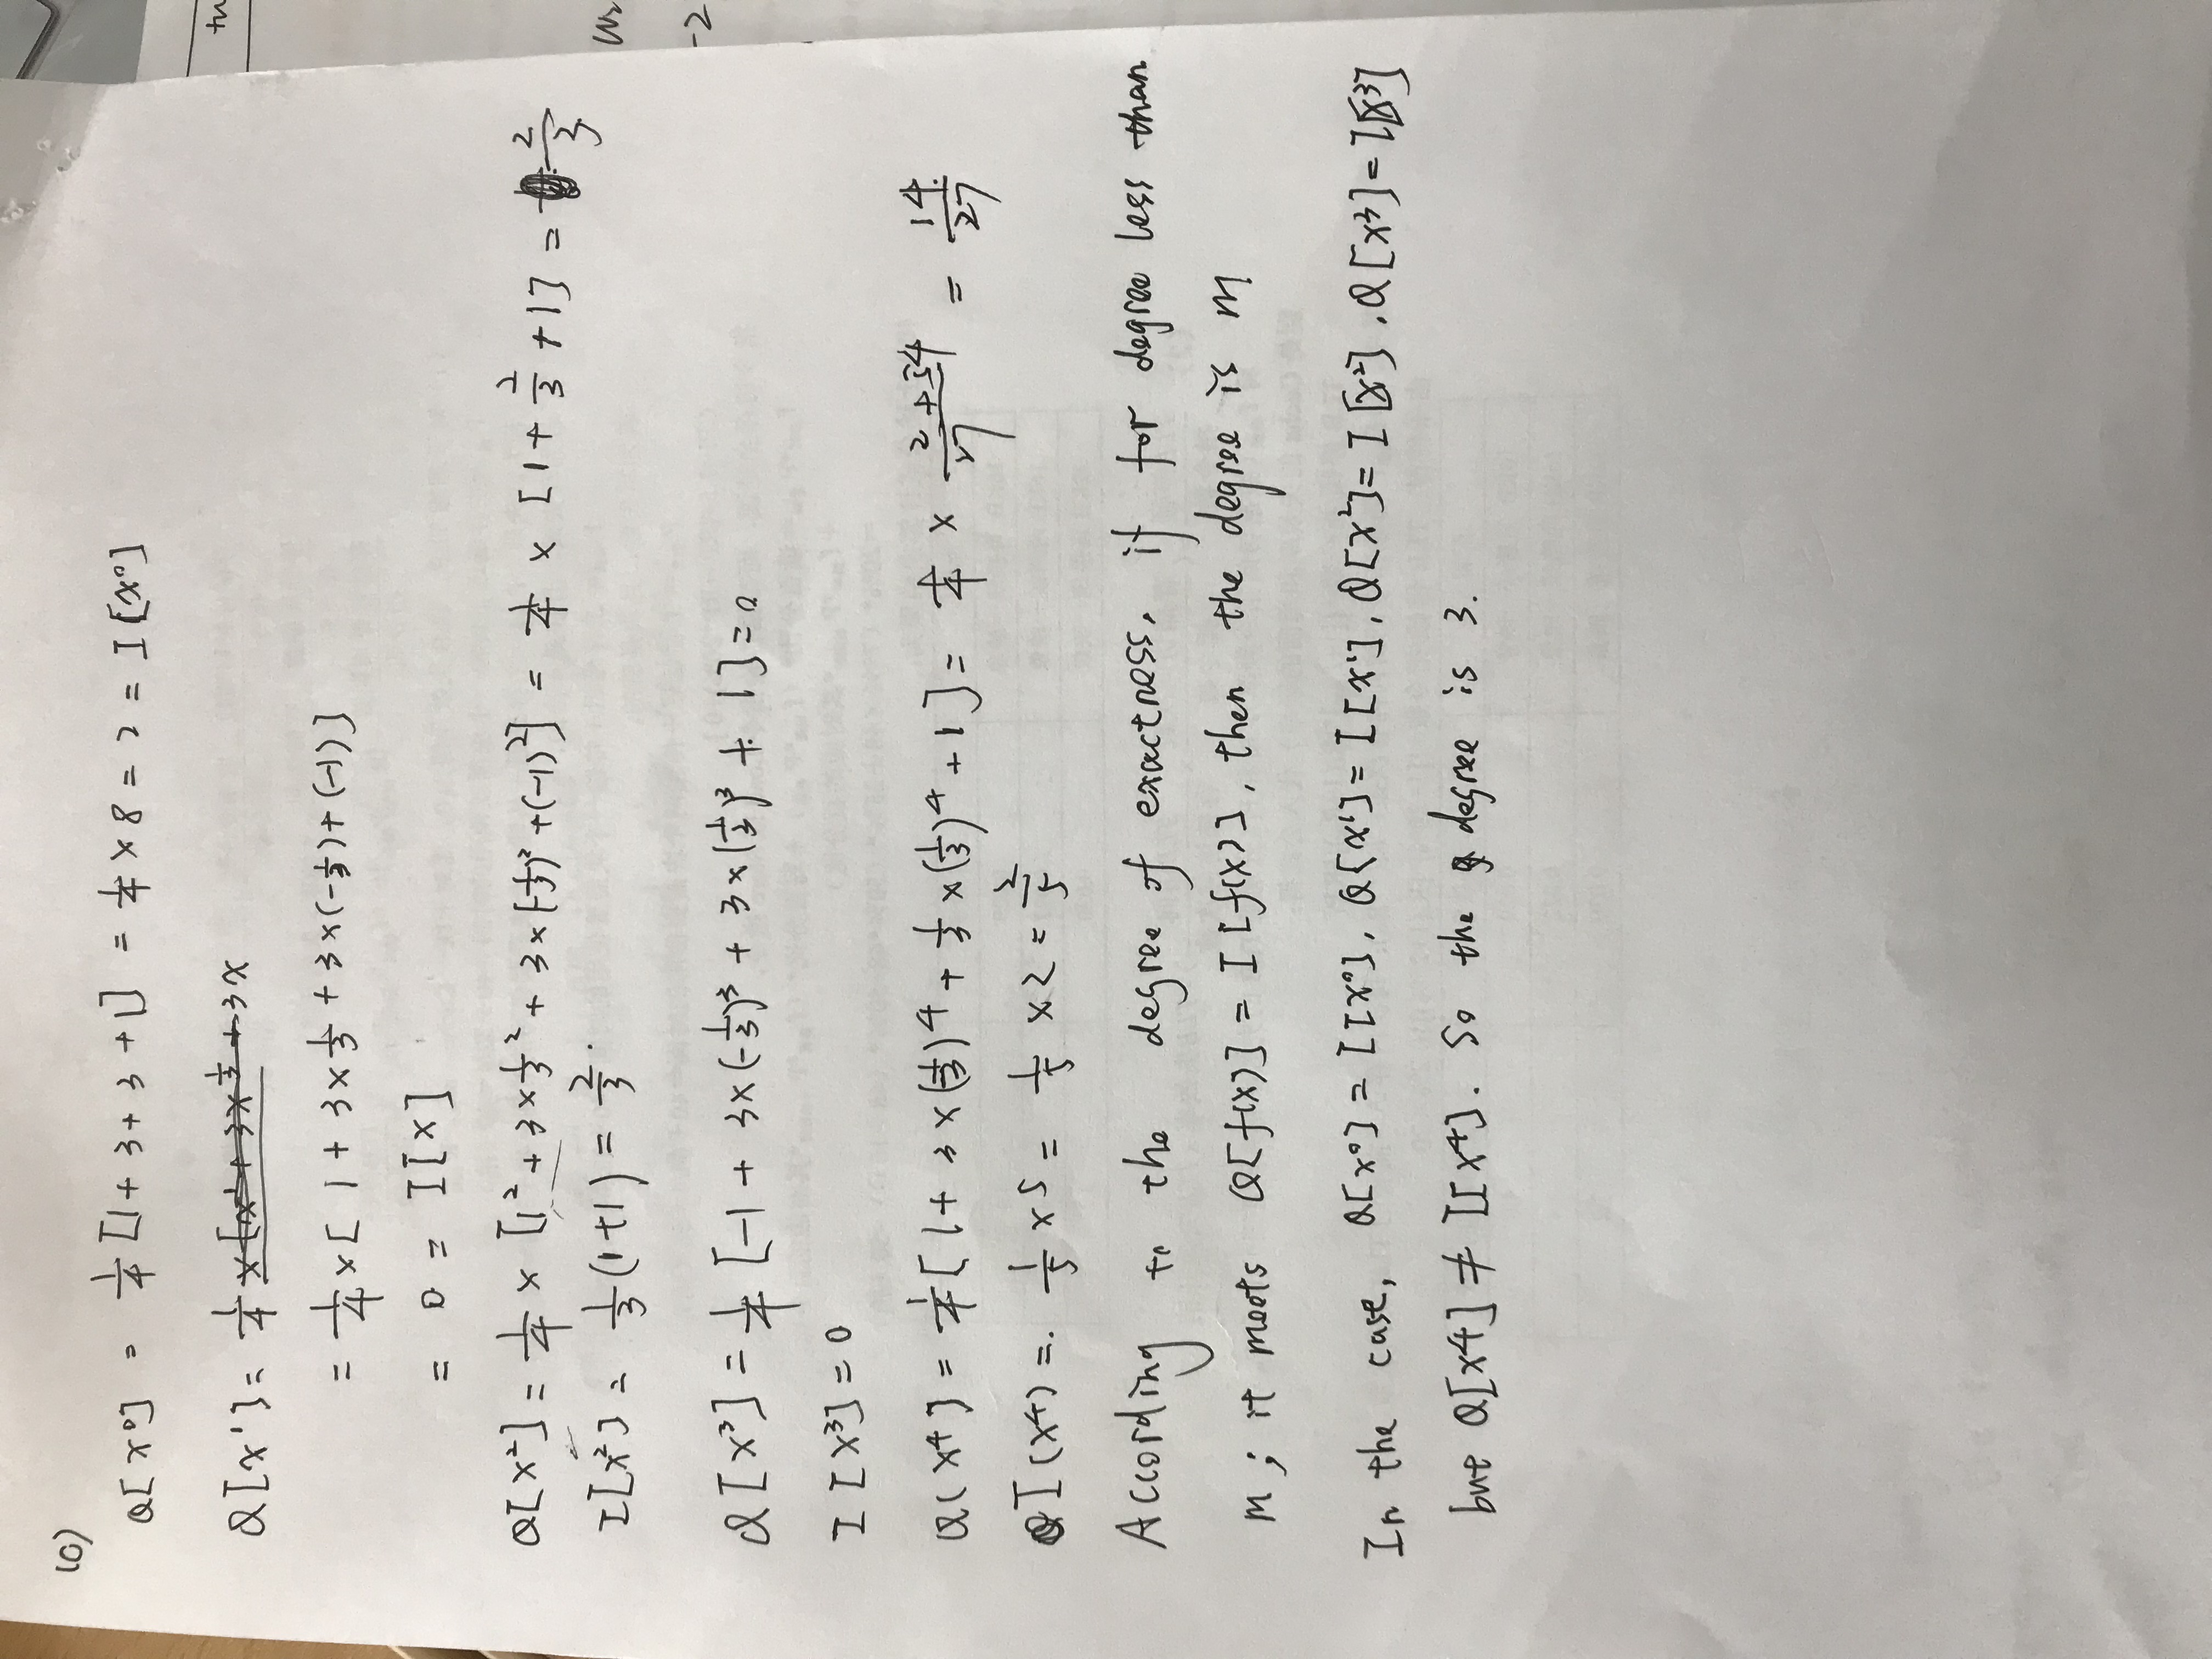 (c)
Q[x⁰] = 1/4 [1 + 3 + 3 + 1] = 1/4 × 8 = 2 = I[x⁰]
Q[x¹] = 1/4 × [x¹ + 3x^1/3 + 3x
= 1/4 × [ 1 + 3 × 1/3 + 3 × (-1/3) + (-1) ]
= 0 = I[x]
Q[x²] = 1/4 × [1² + 3 × 1/3² + 3 × (-1/3)² + (-1)²] = 1/4 × [1 + 2/3 + 1] = 2/3
I[x²] = 1/3 (1+1) = 2/3.
Q[x³] = 1/4 [-1 + 3 × (-1/3)³ + 3 × (1/3)³ + 1] = 0
I[x³] = 0
Q(x⁴] = 1/4 [1 + 3 × (1/3)⁴ + 1/3 × (1/3)⁴ + 1] = 1/4 × (2+54)/27 = 14/27
I(x⁴) = 1/5 × 5 = 1/5 × 2 = 2/5
According to the degree of exactness, if for degree less than
m; it meets Q[f(x)] = I[f(x)], then the degree is m
In the case, Q[x⁰] = I[x⁰], Q[x¹] = I[x¹], Q[x²] = I[x²], Q[x³] = I[x³]
but Q[x4] ≠ I[x⁴]. So the degree is 3.
-2